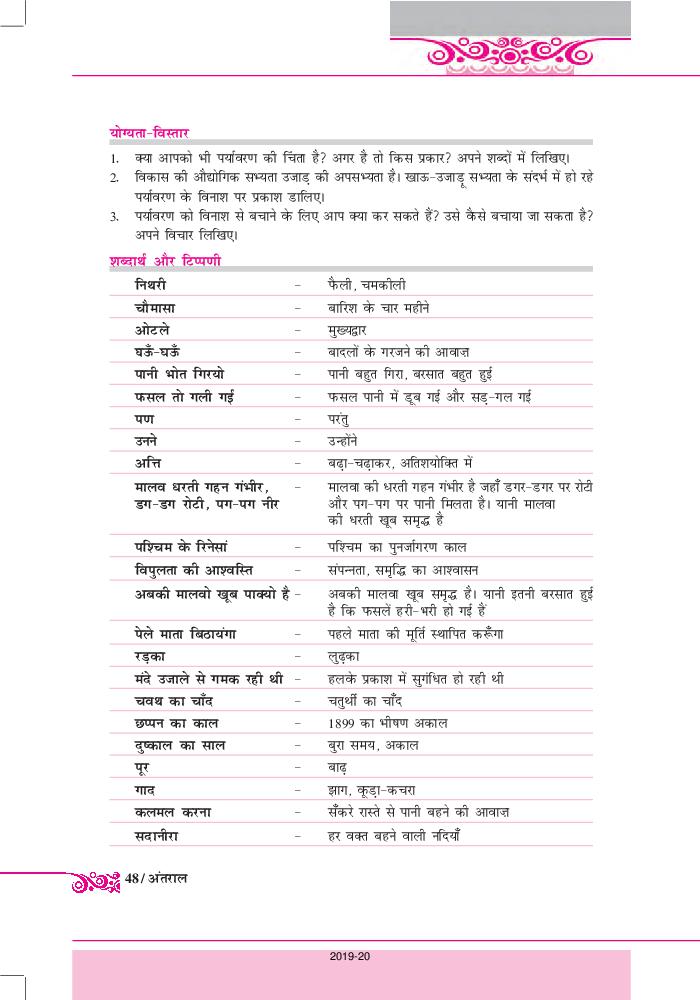 योग्यता-विस्तार
1. क्या आपको भी पर्यावरण की चिंता है? अगर है तो किस प्रकार? अपने शब्दों में लिखिए।
2. विकास की औद्योगिक सभ्यता उजाड़ की अपसभ्यता है। खाऊ-उजाड़ू सभ्यता के संदर्भ में हो रहे
पर्यावरण के विनाश पर प्रकाश डालिए।
3. पर्यावरण को विनाश से बचाने के लिए आप क्या कर सकते हैं? उसे कैसे बचाया जा सकता है?
अपने विचार लिखिए।
शब्दार्थ और टिप्पणी
निथरी – फैली, चमकीली
चौमासा – बारिश के चार महीने
ओटले – मुख्यद्वार
घऊँ-घऊँ – बादलों के गरजने की आवाज़
पानी भोत गिरयो – पानी बहुत गिरा, बरसात बहुत हुई
फसल तो गली गई – फसल पानी में डूब गई और सड़-गल गई
पण – परंतु
उनने – उन्होंने
अत्ति – बढ़ा-चढ़ाकर, अतिशयोक्ति में
मालव धरती गहन गंभीर, – मालवा की धरती गहन गंभीर है जहाँ डगर-डगर पर रोटी
डग-डग रोटी, पग-पग नीर और पग-पग पर पानी मिलता है। यानी मालवा
की धरती खूब समृद्ध है
पश्चिम के रिनेसां – पश्चिम का पुनर्जागरण काल
विपुलता की आश्वस्ति – संपन्नता, समृद्धि का आश्वासन
अबकी मालवो खूब पाक्यो है – अबकी मालवा खूब समृद्ध है। यानी इतनी बरसात हुई
है कि फसलें हरी-भरी हो गई हैं
पेले माता बिठायंगा – पहले माता की मूर्ति स्थापित करूँगा
रड़का – लुढ़का
मंदे उजाले से गमक रही थी – हलके प्रकाश में सुगंधित हो रही थी
चवथ का चाँद – चतुर्थी का चाँद
छप्पन का काल – 1899 का भीषण अकाल
दुष्काल का साल – बुरा समय, अकाल
पूर – बाढ़
गाद – झाग, कूड़ा-कचरा
कलमल करना – सँकरे रास्ते से पानी बहने की आवाज़
सदानीरा – हर वक्त बहने वाली नदियाँ
48/अंतराल
2019-20